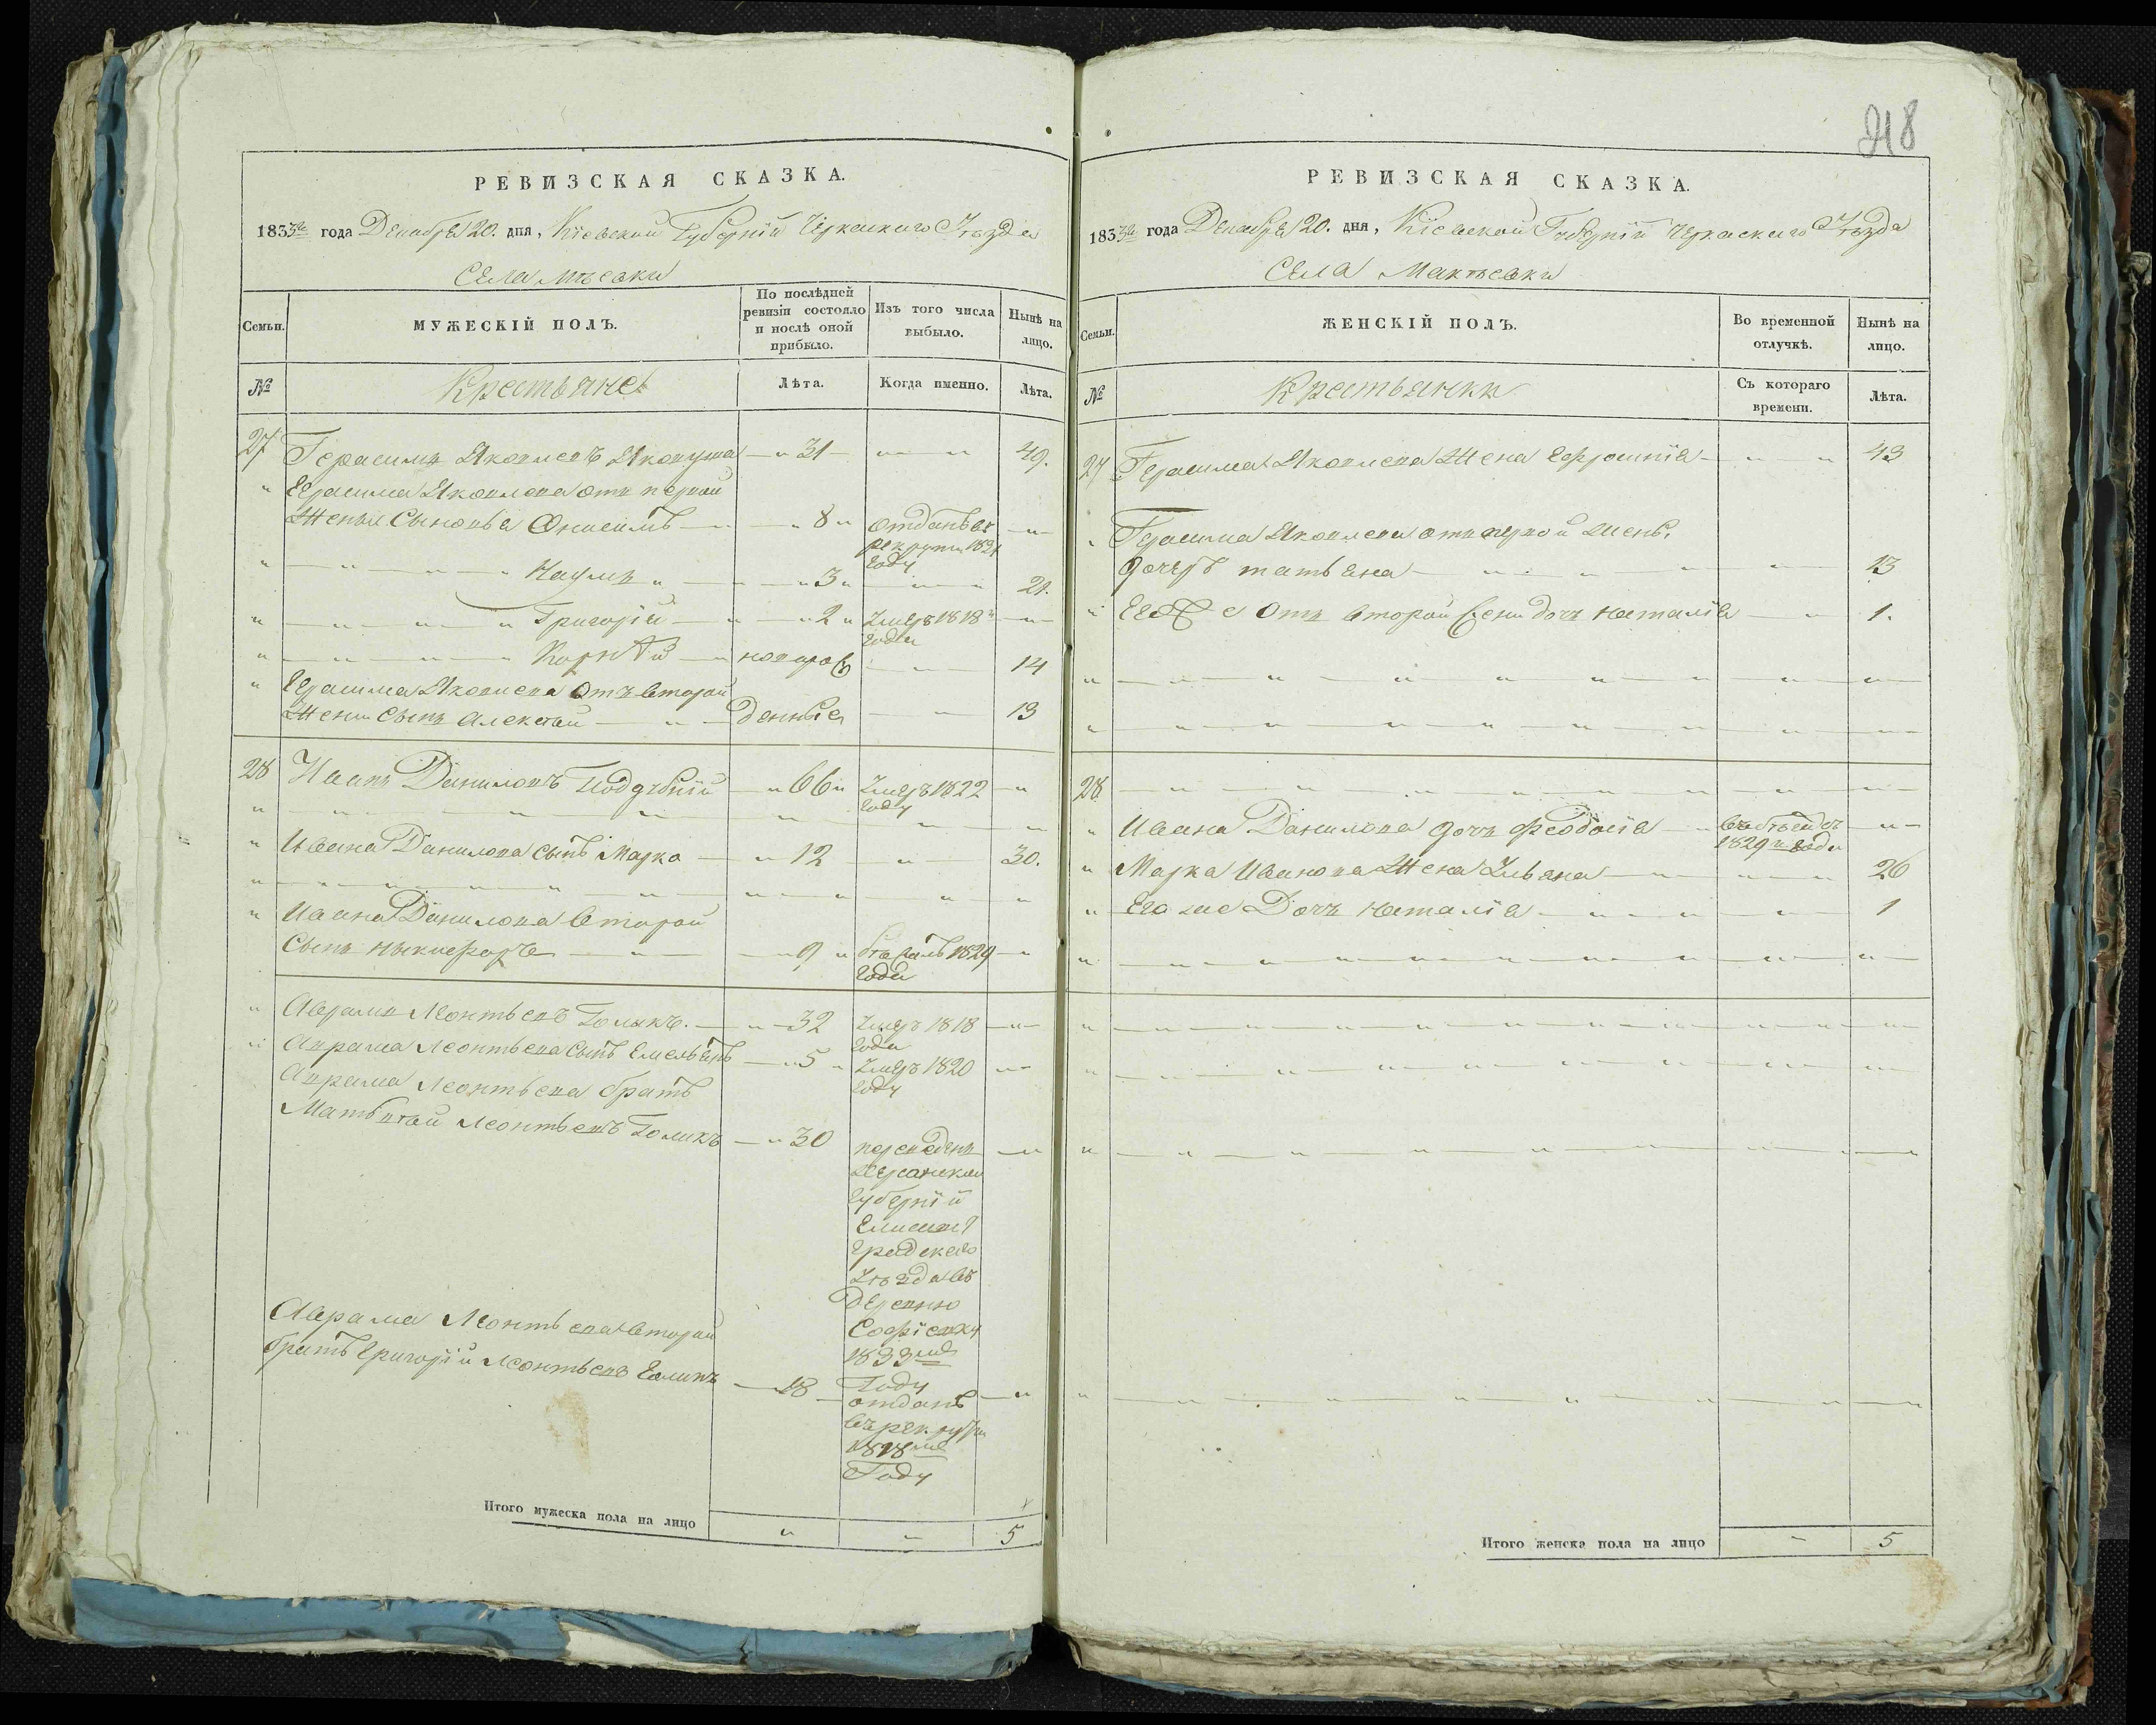 218
РЕВИЗСКАЯ СКАЗКА.
183 года Декабря 20. дня, Кіевской Губерніи Черкаскаго Уѣзда
Села
Семьи. МУЖЕСКІЙ ПОЛЪ. По послѣдней ревизіи состояло и послѣ оной прибыло. Изъ того числа выбыло. Нынѣ на лицо.
№ Крестьяне Лѣта. Когда именно. Лѣта.
27 Герасимъ Яковлевъ 31 49.
Герасима Яковлева отъ первой
жены сыновья Онисимъ 8 отданъ въ
рекруты 1821
году
Наумъ 3 21.
Григорій 2 умеръ 1818
года
Корнѣй новорож 14
Герасима Яковлева отъ второй
жены сынъ Алексѣй денные 13
28 Иванъ Даниловъ 66 умеръ 1822
году
Ивана Данилова сынъ Марко 12 30.
Ивана Данилова второй
сынъ 9 1829
года
Аврамъ Леонтьевъ Голикъ. 32 умеръ 1818
года
Аврама Леонтьева сынъ Емельянъ 5 умеръ 1820
году
Аврама Леонтьева братъ
Матьвѣй Леонтьевъ Голикъ 30 переведенъ
Херсонской
губерніи
Елисавет
градскаго
уѣзда въ
деревню
Софіевку
1833мъ
году
Аврама Леонтьева второй
братъ Григорій Леонтьевъ Голикъ 18 отданъ
въ рекруты
1818мъ
году
Итого мужеска пола на лицо 5
РЕВИЗСКАЯ СКАЗКА.
183 года Декабря 20. дня, Кіевской Губерніи Черкаскаго Уѣзда
Села Макѣевки
Семьи. ЖЕНСКІЙ ПОЛЪ. Во временной отлучкѣ. Нынѣ на лицо.
№ Крестьянки Съ котораго времени. Лѣта.
27 Герасима Яковлева жена Ефросинія 43
Герасима Яковлева отъ первой жены
дочерь татьяна 13
Его же отъ второй жени дочь Наталія 1.
28
Ивана Данилова дочь Феодосія
1829 года
Марка Иванова жена Ульяна 26
Его же дочь Наталія 1
Итого женска пола на лицо 5